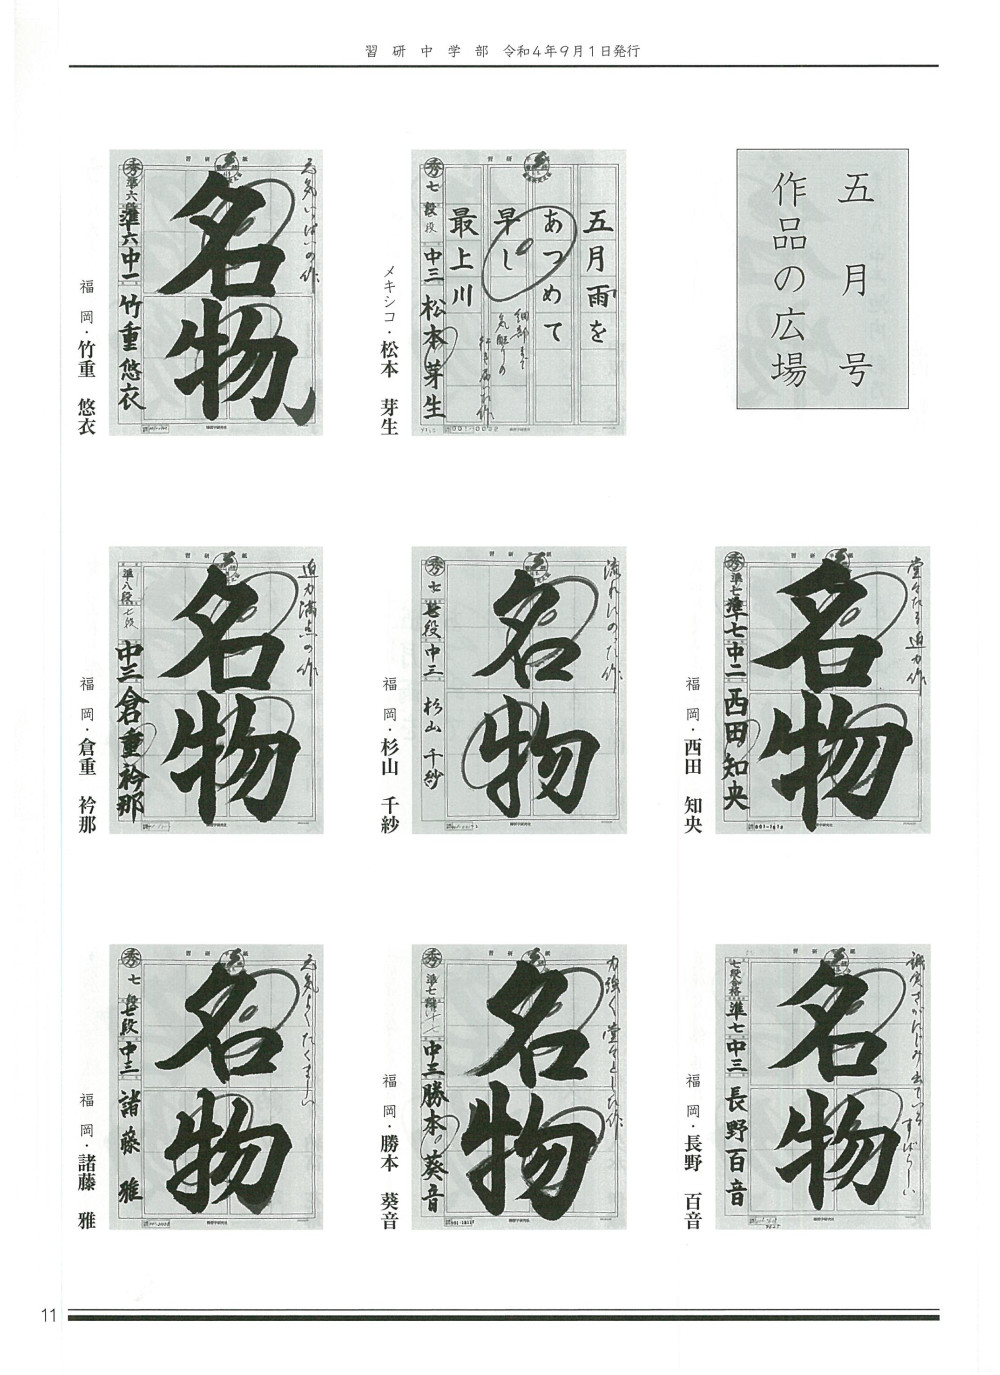 習研中学部 令和4年9月1日発行
五月号
作品の広場
五月雨を
あつめて
早し
最上川
細部まで
気配りの
行き届いた作
秀 七段 中三 松本芽生
メキシコ・松本 芽生
名物
元気いっぱいの作
秀 準六段 準六 中一 竹重悠衣
福岡・竹重 悠衣
名物
堂々たる迫力作
秀 準七 中二 西田知央
001-1612
福岡・西田 知央
名物
流れにのった作
秀 七段 中三 杉山千紗
福岡・杉山 千紗
名物
迫力満点の作
準八段 七段 中三 倉重衿那
福岡・倉重 衿那
名物
誠実さがにじみ出ている
すばらしい
七段合格 準七 中三 長野百音
福岡・長野 百音
名物
力強く堂々とした作
秀 準七段 中三 勝本葵音
福岡・勝本 葵音
名物
元気よくたくましい
秀 七段 中三 諸藤雅
福岡・諸藤 雅
11